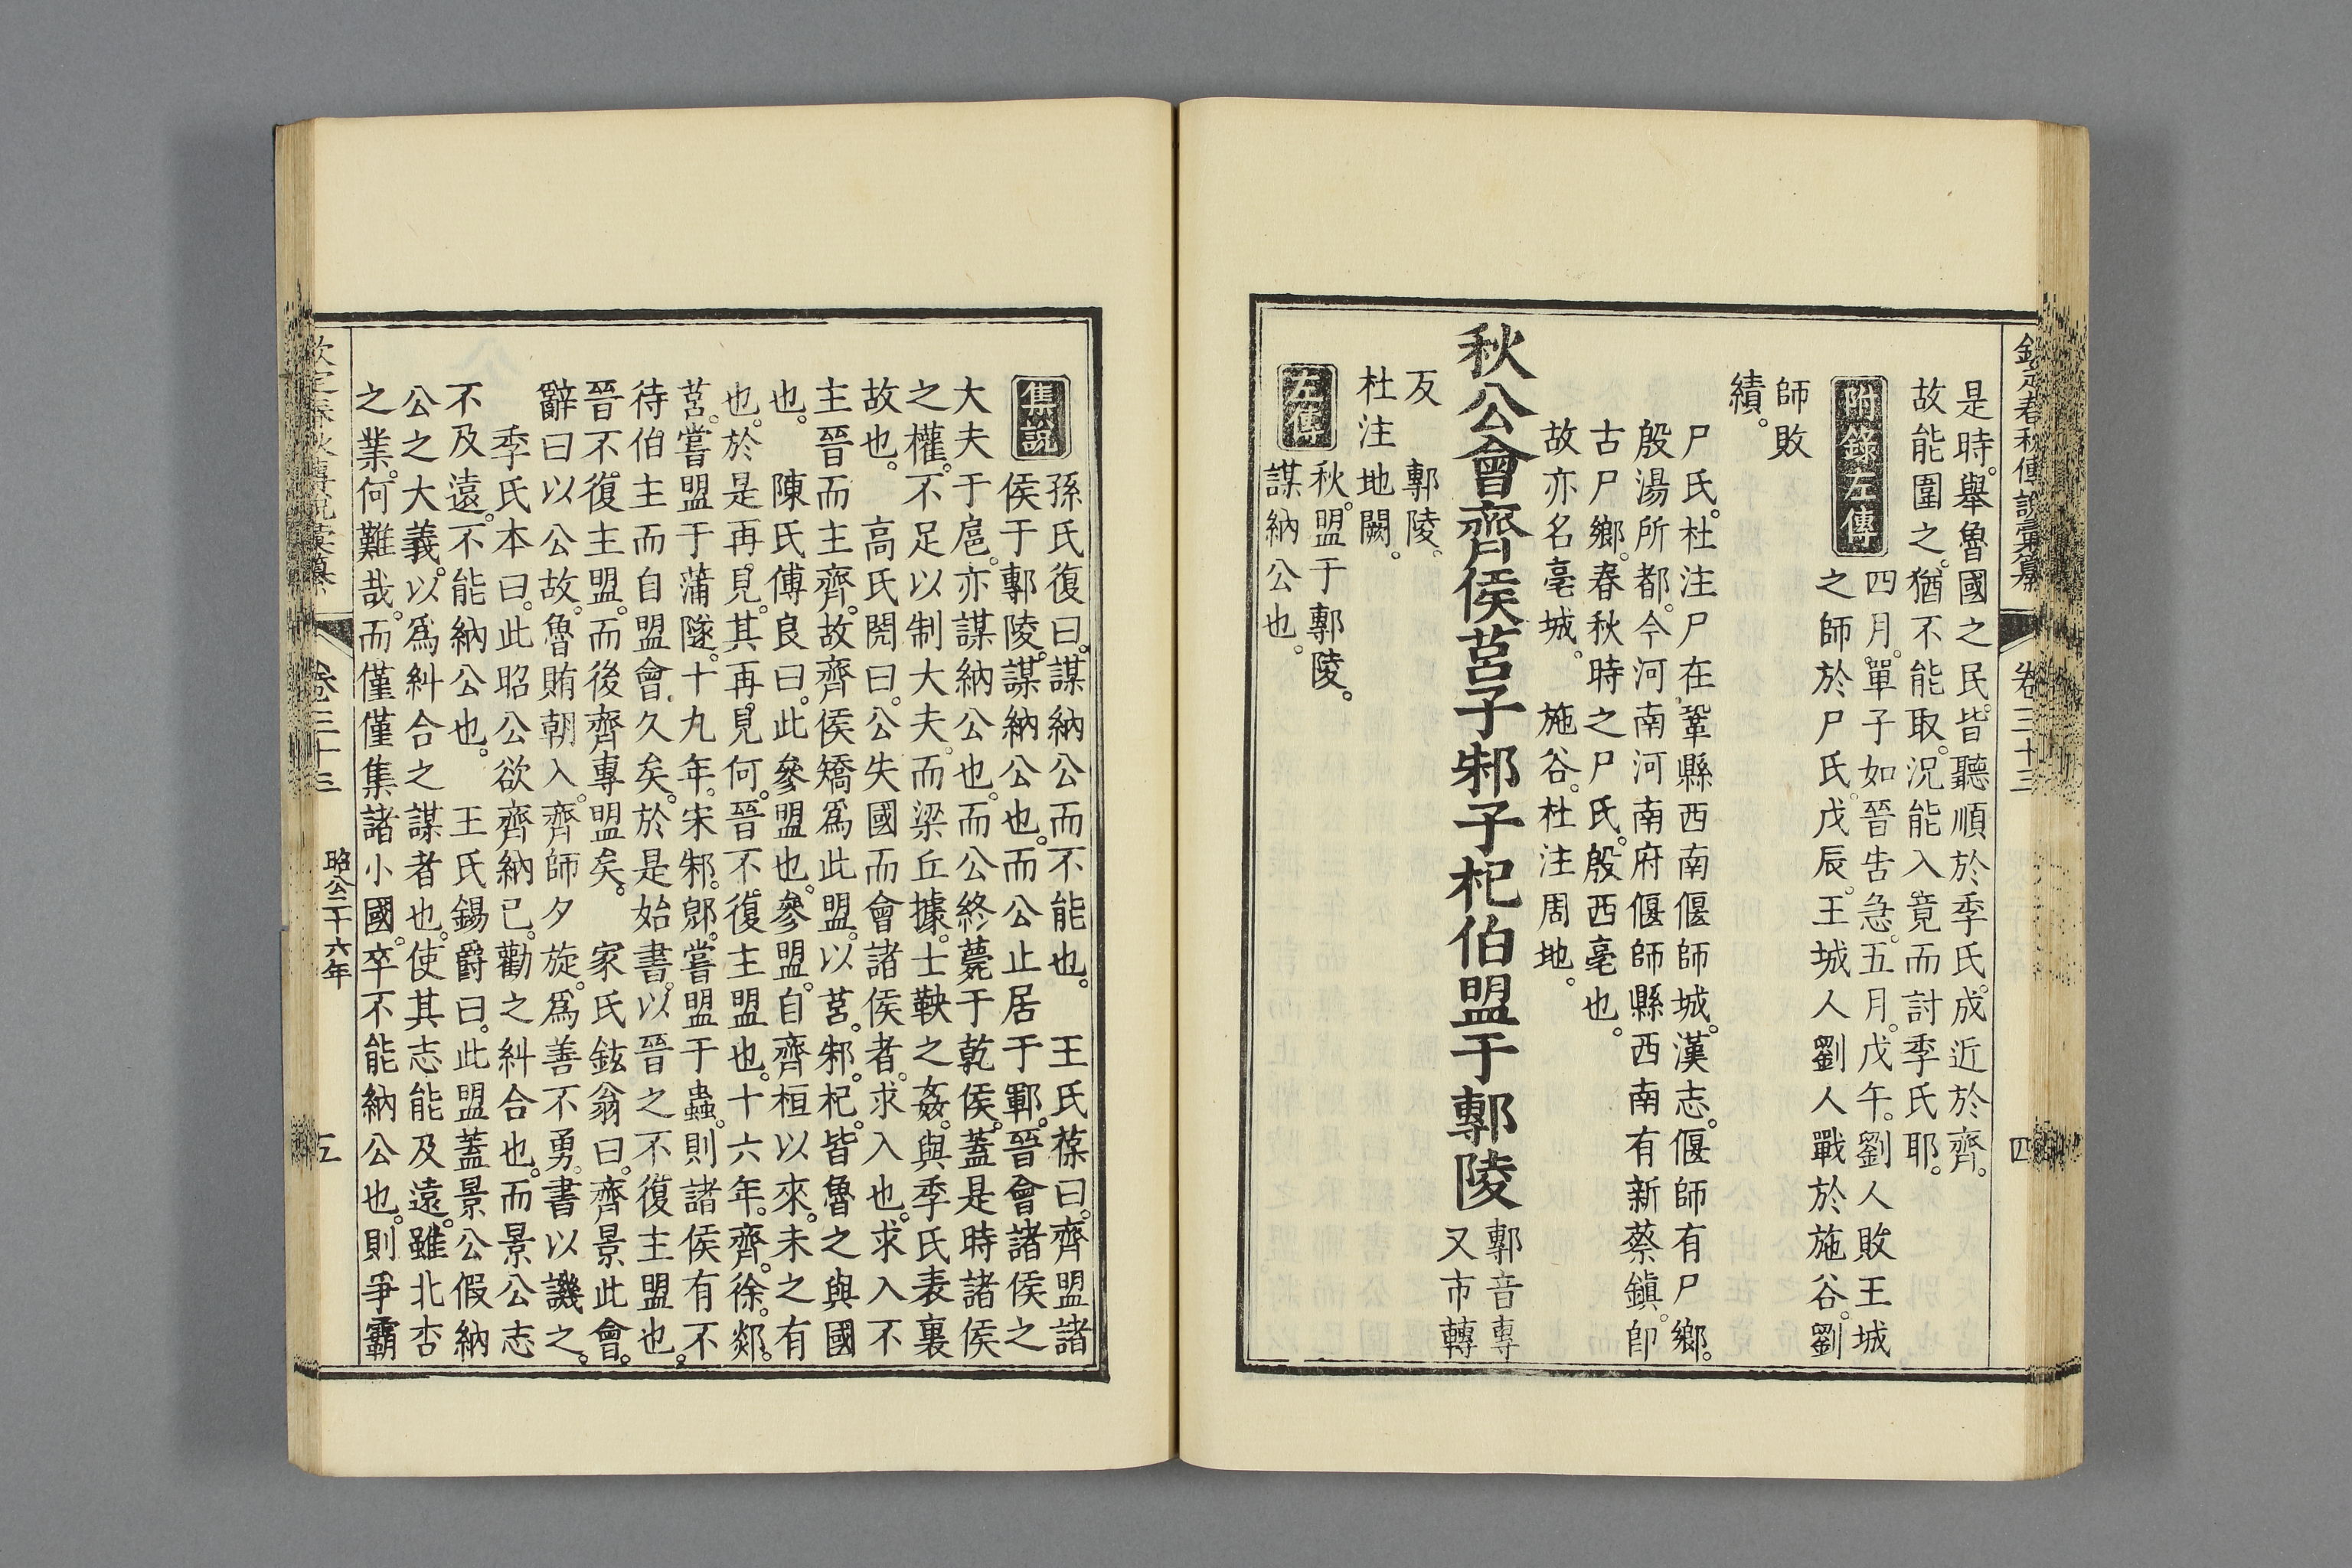 欽定春秋傳說彙纂
卷三十三
四
是時。舉魯國之民。皆聽順於季氏。成近於齊。
故能圍之。猶不能取。況能入竟而討季氏耶。
附錄左傳
四月。單子如晉告急。五月。戊午。劉人敗王城
之師於尸氏。戊辰。王城人劉人戰於施谷。劉
師敗
績。
尸氏。杜注尸在鞏縣西南偃師城。漢志。偃師有尸鄉。
殷湯所都。今河南河南府偃師縣西南有新蔡鎮。卽
古尸鄉。春秋時之尸氏。殷西亳也。
故亦名亳城。 施谷。杜注周地。
秋公會齊侯莒子邾子杞伯盟于鄟陵
鄟音專
又市轉
反 鄟陵。
杜注地闕。
左傳
秋。盟于鄟陵。
謀納公也。
集說
孫氏復曰。謀納公而不能也。 王氏葆曰。齊盟諸
侯于鄟陵。謀納公也。而公止居于鄆。晉會諸侯之
大夫于扈。亦謀納公也。而公終薨于乾侯。蓋是時諸侯
之權。不足以制大夫。而梁丘據。士鞅之姦。與季氏表裏
故也。 高氏閌曰。公失國而會諸侯者。求入也。求入不
主晉而主齊。故齊侯矯爲此盟。以莒。邾。杞。皆魯之與國
也。 陳氏傅良曰。此參盟也。參盟。自齊桓以來。未之有
也。於是再見。其再見何。晉不復主盟也。十六年。齊。徐。郯。
莒。嘗盟于蒲隧。十九年。宋。邾。郳。嘗盟于蟲。則諸侯有不
待伯主而自盟會久矣。於是始書。以晉之不復主盟也。
晉不復主盟。而後齊專盟矣。 家氏鉉翁曰。齊景此會。
辭曰以公故。魯賄朝入。齊師夕旋。爲善不勇。書以譏之。
季氏本曰。此昭公欲齊納已。勸之糾合也。而景公志
不及遠。不能納公也。 王氏錫爵曰。此盟蓋景公假納
公之大義。以爲糾合之謀者也。使其志能及遠。雖北杏
之業。何難哉。而僅僅集諸小國。卒不能納公也。則爭霸
欽定春秋傳說彙纂
卷三十三
昭公二十六年
五